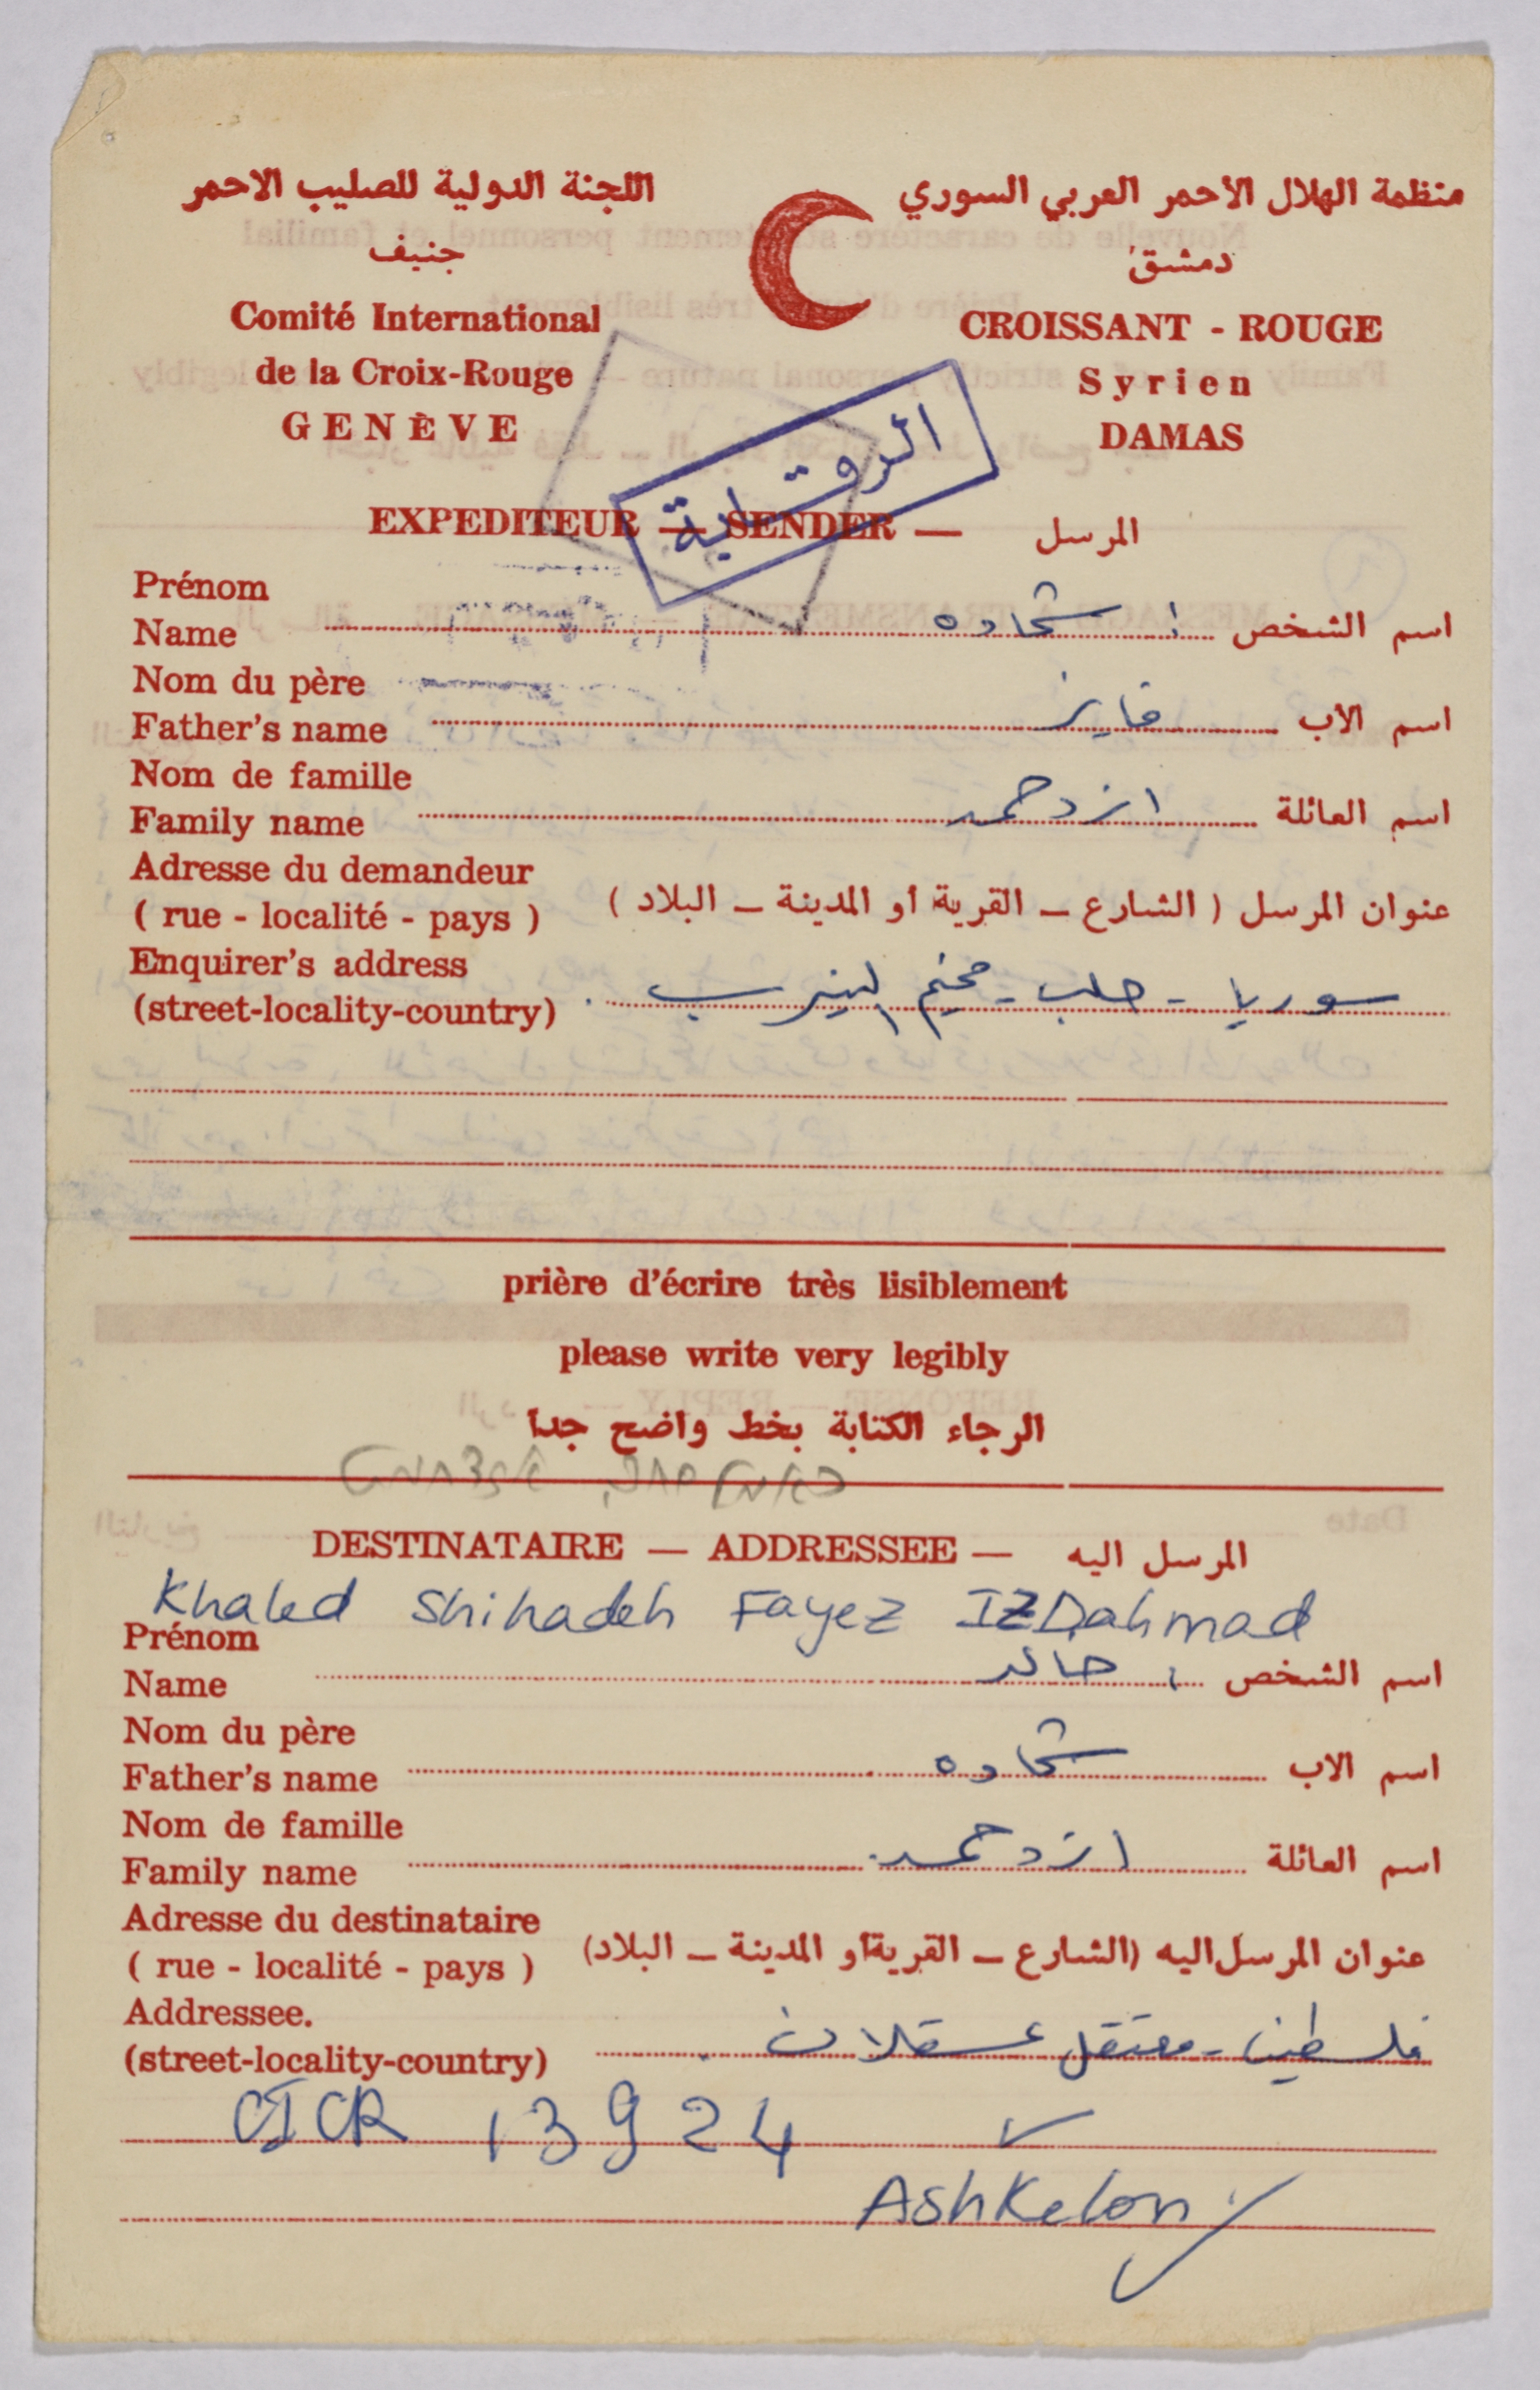 منظمة الهلال الأحمر العربي السوري
دمشق
CROISSANT - ROUGE
Syrien
DAMAS
اللجنة الدولية للصليب الاحمر
جنيف
Comité International
de la Croix-Rouge
GENÈVE
الرقابة
EXPEDITEUR — SENDER — المرسل
Prénom
Name شحاده اسم الشخص
Nom du père
Father's name فايز اسم الأب
Nom de famille
Family name ازدحمد اسم العائلة
Adresse du demandeur
( rue - localité - pays ) عنوان المرسل ( الشارع ـ القرية أو المدينة ـ البلاد )
Enquirer's address
(street-locality-country) سوريا - حلب - مخيم النيرب
prière d'écrire très lisiblement
please write very legibly
الرجاء الكتابة بخط واضح جداً
DESTINATAIRE — ADDRESSEE — المرسل اليه
Khaled Shihadeh Fayez IZDahmad
Prénom
Name خالد اسم الشخص
Nom du père
Father's name شحاده اسم الاب
Nom de famille
Family name ازدحمد اسم العائلة
Adresse du destinataire
( rue - localité - pays ) عنوان المرسل اليه (الشارع ـ القرية أو المدينة ـ البلاد)
Addressee.
(street-locality-country) فلسطين - معتقل عسقلان
CICR 13924
Ashkelon